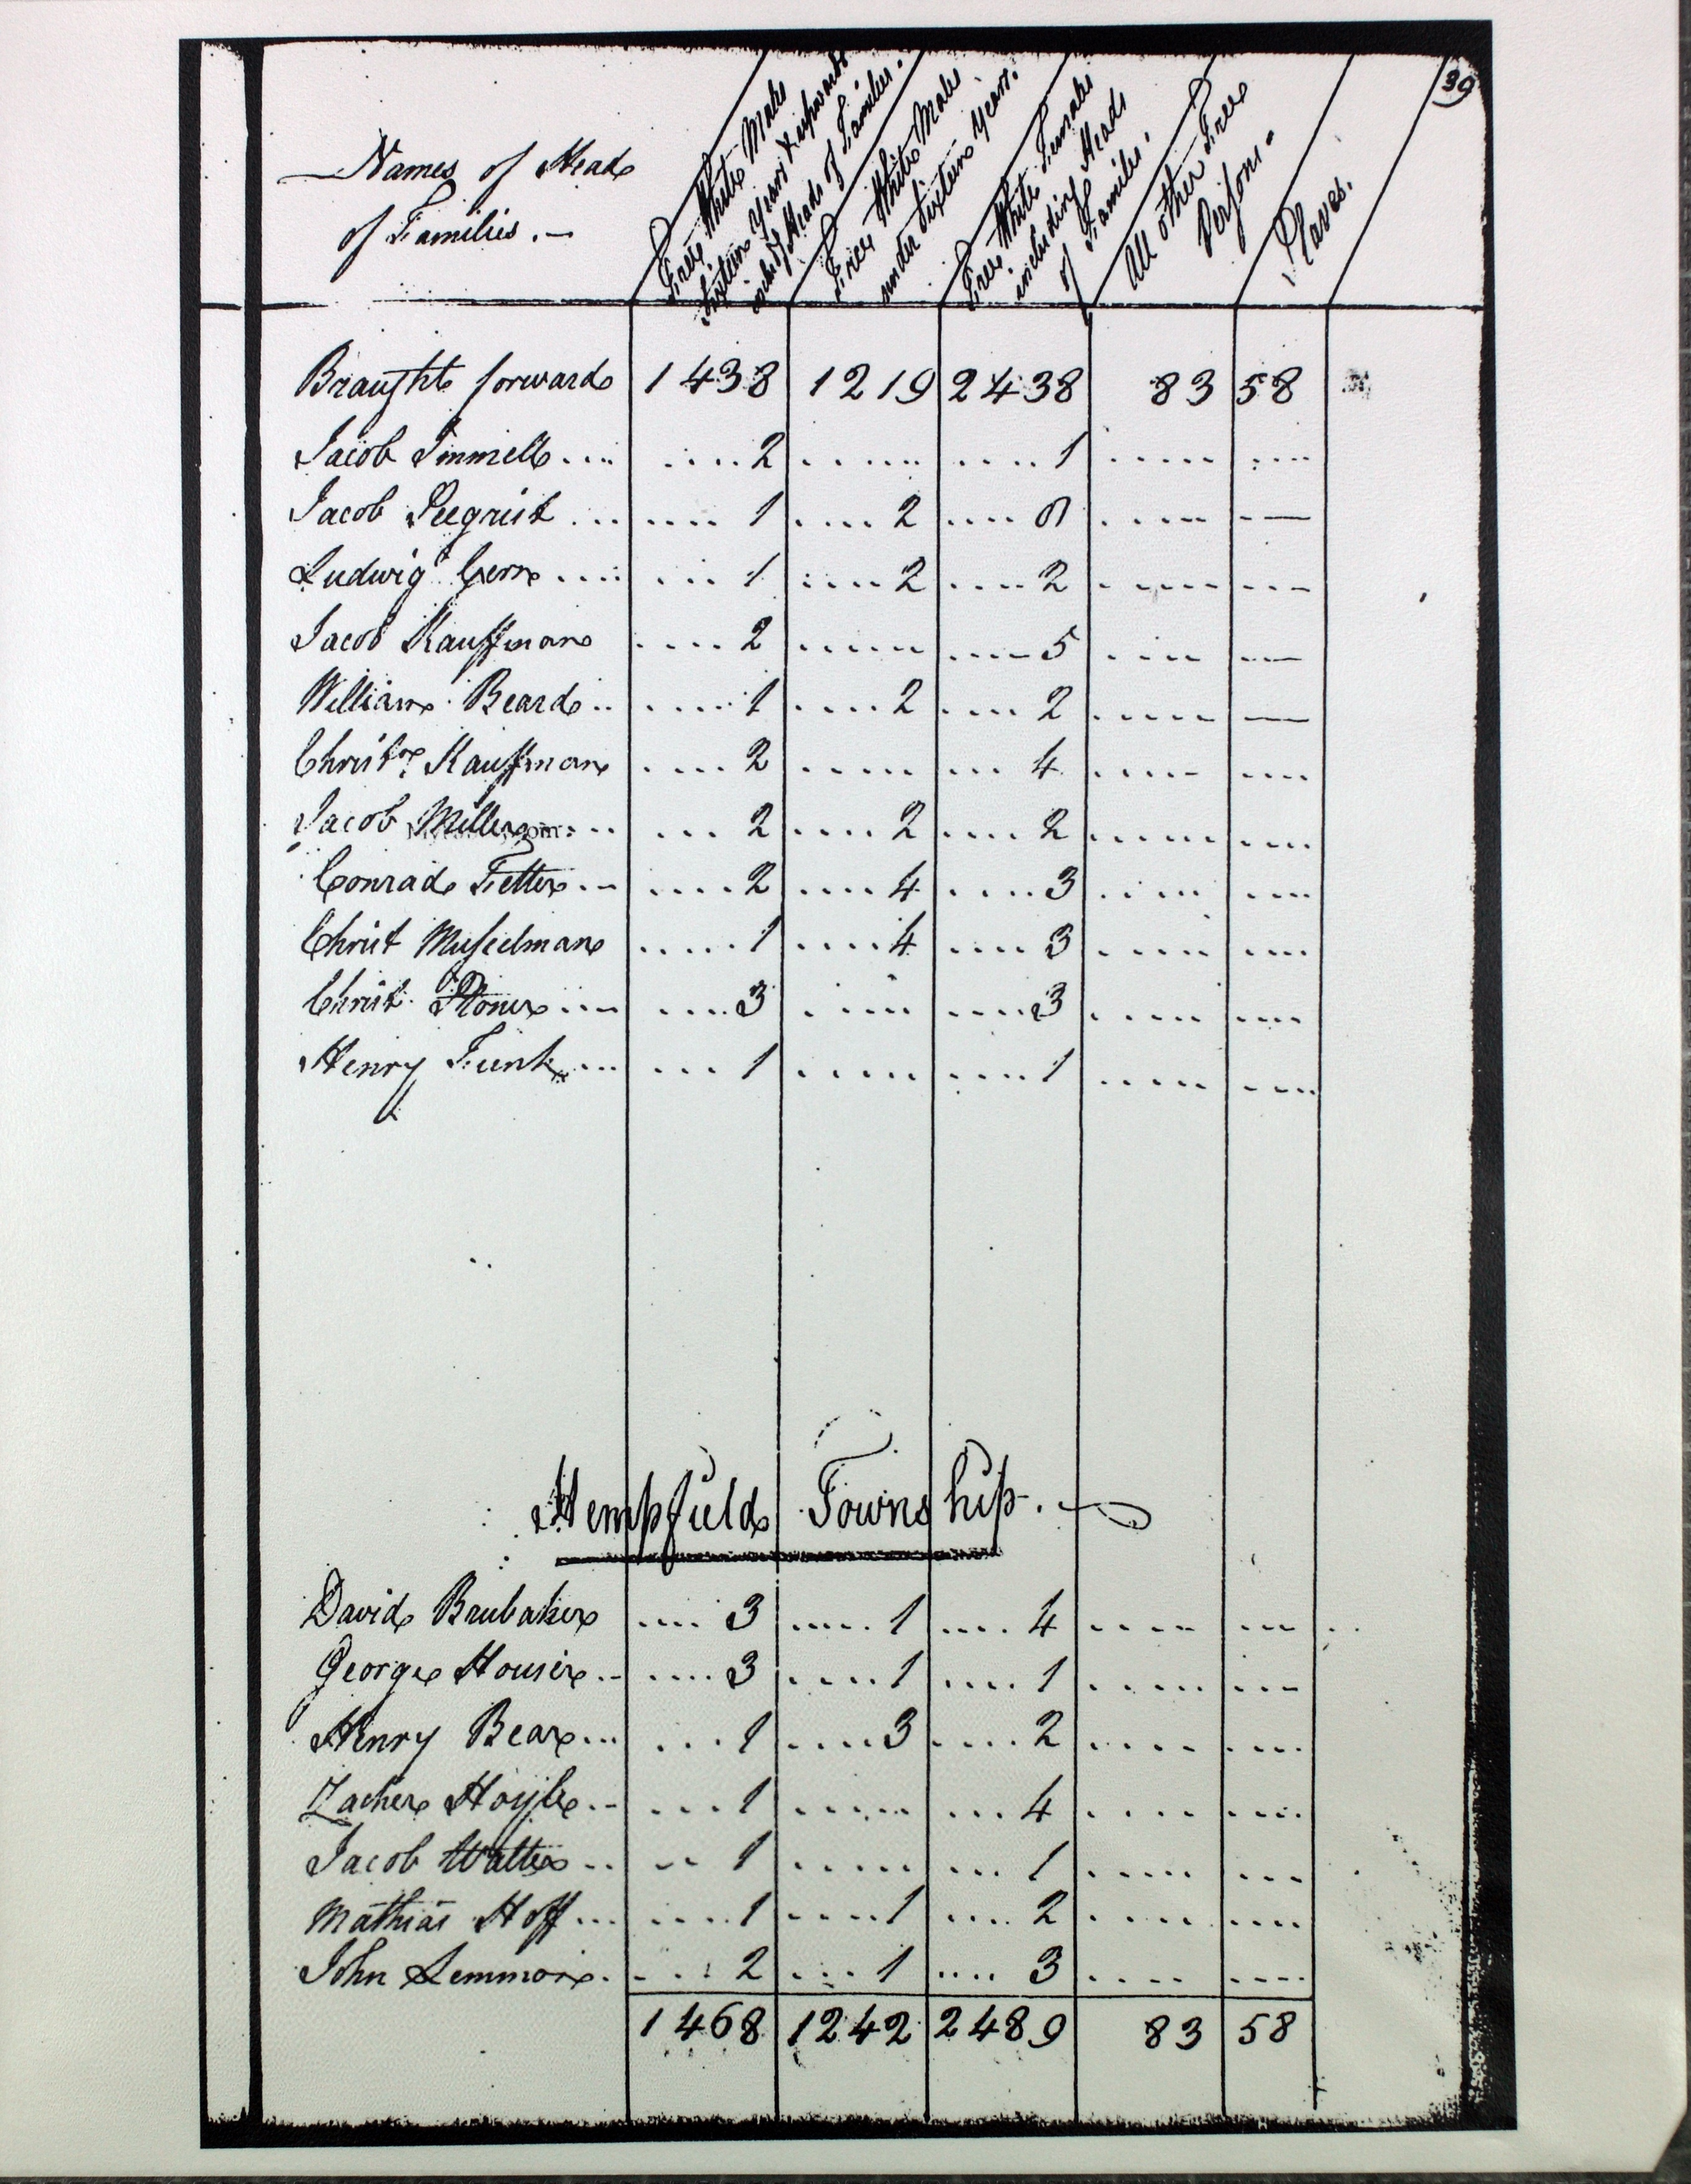 39
Names of Heads
of Families.
Free White Males
Sixteen Years & upwards
includg Heads of Families.
Free White Males
under Sixteen Years.
Free White Females
including Heads
of Families.
All other Free
Persons.
Slaves.
Braught forward 1438 1219 2438 83 58
Jacob Immell .... 2 ...... 1 ..... ....
Jacob Seegrist ... 1 .... 2 ....
Ludwig .... 1 .... 2 .... 2 ..... ...
Jacob Kauffman .... 2 ..... 5 .... ...
William Beard .. 1 .... 2 .... 2 ..... ...
Christr. Kauffman .... 2 ..... 4 ..... ....
Jacob Miller ... 2 .... 2 .... 2 ..... ....
Conrad Fetter ... 2 .... 4 .... 3 ..... ....
Christ Musselman ..... 1 .... 4 .... 3 ..... ....
Christ. Stoner .... 3 ..... 3 ..... ....
Henry Funk ... 1 ..... 1 ..... ....
Hempfield Township.
David Brubaker .... 3 ..... 1 .... 4 .... ...
George Houser .. 3 .... 1 .... 1 ..... ...
Henry Bear ... 1 .... 3 .... 2 .... ....
Hoyle .. 1 ..... 4 .... ....
Jacob Walter .. 1 ..... 1 ..... ...
Mathias Hoff ... 1 .... 1 .... 2 .... ....
John Lemmon . 2 ... 1 .... 3 .... ....
1468 1242 2489 83 58